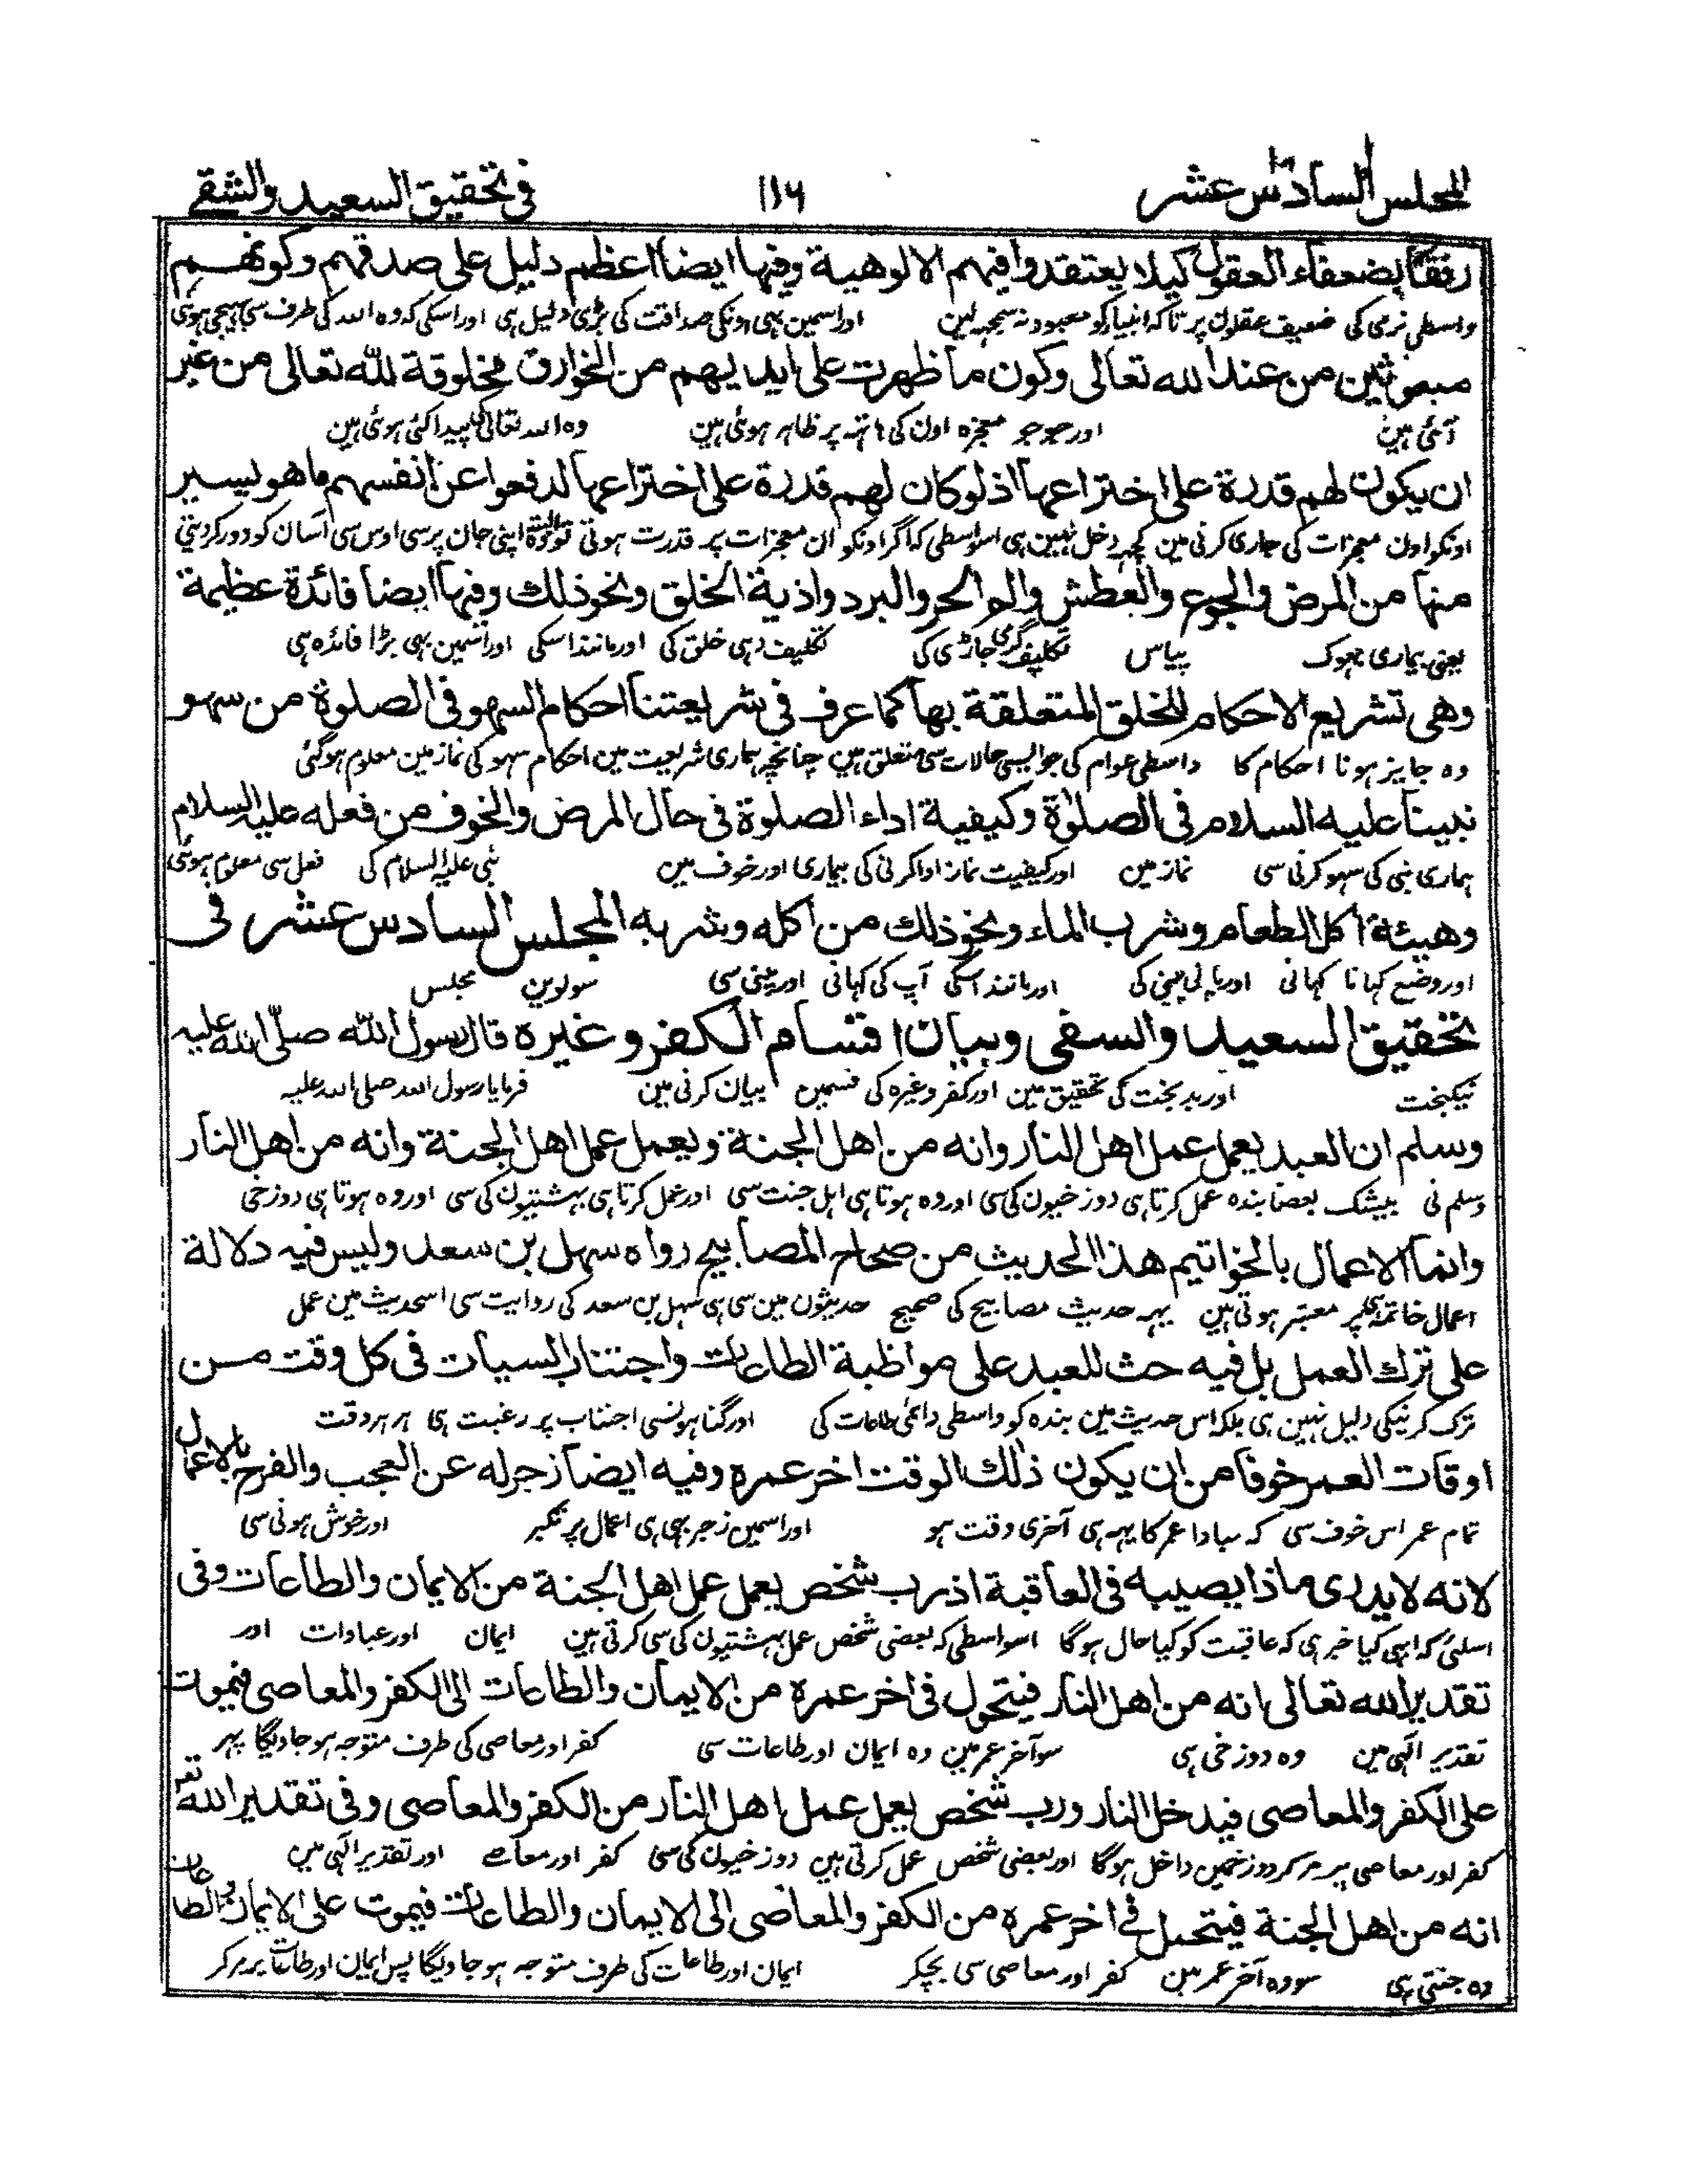 المجلس السادس عشر
١١٦
فى تحقيق السعيد والشقے
رفقا بضعفاء العقول كيلا يعتقدوا فيهم الالوهية وفيها ايضا اعظم دليل على صدقهم وكونهم
واسطی نرمی کی ضعیف عقلون پر تاکہ انبیا کو معبود نہ سمجہہ لین اور اسمین بہی اونکی صداقت کی بڑی دلیل ہی اور اسکی کہ وہ اللہ کی طرف سی بہیجی ہوئی
مبعوثين من عند الله تعالى وكون ما ظهرت على ايديهم من الخوارق مخلوقة لله تعالى من غير
آئی ہین اور جو جو معجزہ اون کی ہاتہہ پر ظاہر ہوئی ہین وہ اللہ تعالی کی پیدا کئی ہوئی ہین
ان يكون لهم قدرة على اختراعها اذ لو كان لهم قدرة على اختراعها لدفعوا عن انفسهم ما هو يسير
اونکو اون معجزات کی جاری کرنی مین کچہہ دخل نہین ہی اسواسطی کہ اگر اونکو ان معجزات پر قدرت ہوتی تو البتہ اپنی جان پر سی اوس سی آسان کو دور کر دیتی
منها من المرض والجوع والعطش والم الحر والبرد واذية الخلق ونحو ذلك وفيها ايضا فائدة عظيمة
یعنی بیماری بہوک پیاس تکلیف گرمی جاڑی کی تکلیف دہی خلق کی اور مانند اسکی اور اسمین بہی بڑا فائدہ ہی
وهى تشريع الاحكام للخلق المتعلقة بها كما عرف فى شريعتنا احكام السهو فى الصلوة من سهو
وہ جایز ہونا احکام کا واسطی عوام کی جو ایسی حالات سی متعلق ہین چنانچہ ہماری شریعت مین احکام سہو کی نماز مین معلوم ہوگئی
نبينا عليه السلام فى الصلوة وكيفية اداء الصلوة فى حال المرض والخوف من فعله عليه السلام
ہماری نبی کی سہو کرنی سی نماز مین اور کیفیت نماز ادا کرنی کی بیماری اور خوف مین نبی علیہ السلام کی فعل سی معلوم ہوئی
وهيئة اكل الطعام وشرب الماء ونحو ذلك من اكله وشربه المجلس السادس عشر فى
اور وضع کہانا کہانی اور پانی پینی کی اور مانند اسکی آپ کی کہانی اور پینی سی سولوین مجلس
تحقيق السعيد والسقى وبيان اقسام الكفر وغيره قال رسول الله صلى الله عليه
نیکبخت اور بدبخت کی تحقیق مین اور کفر وغیرہ کی قسمین بیان کرنی مین فرمایا رسول اللہ صلی اللہ علیہ
وسلم ان العبد يعمل عمل اهل النار وانه من اهل الجنة ويعمل عمل اهل الجنة وانه من اهل النار
وسلم نی بیشک بعضا بندہ عمل کرتا ہی دوزخیون کی سی اور وہ ہوتا ہی اہل جنت سی اور عمل کرتا ہی بہشتیون کی سی اور وہ ہوتا ہی دوزخی
وانما الاعمال بالخواتيم هذا الحديث من صحاح المصابيح رواه سهل بن سعد وليس فيه دلالة
اعمال خاتمہ ہی پر معتبر ہوتی ہین یہہ حدیث مصابیح کی صحیح حدیثون مین سی ہی سہل بن سعد کی روایت سی اسحدیث مین عمل
على ترك العمل بل فيه حث للعبد على مواظبة الطاعات واجتناب السيات فى كل وقت من
ترک کرنیکی دلیل نہین ہی بلکہ اس حدیث مین بندہ کو واسطی دائمی طاعات کی اور گناہونسی اجتناب پر رغبت ہی ہر ہر وقت
اوقات العمر خوفا من ان يكون ذلك الوقت اخر عمره وفيه ايضا زجر له عن العجب والفرح بالاعمال
تمام عمر اس خوف سی کہ مبادا عمر کا یہہ ہی آخری وقت ہو اور اسمین زجر بہی ہی اعمال پر تکبر اور خوش ہونی سی
لانه لا يدرى ماذا يصيبه فى العاقبة اذ رب شخص يعمل عمل اهل الجنة من الايمان والطاعات وفى
اسلئی کہ اسی کیا خبر ہی کہ عاقبت کو کیا حال ہوگا اسواسطی کہ بعضی شخص عمل بہشتیون کی سی کرتی ہین ایمان اور عبادات اور
تقدير الله تعالى انه من اهل النار فيتحول فى اخر عمره من الايمان والطاعات الى الكفر والمعاصى فيموت
تقدیر الہی مین وہ دوزخی ہی سو آخر عمر مین وہ ایمان اور طاعات سی کفر اور معاصی کی طرف متوجہ ہو جاویگا پہر
على الكفر والمعاصى فيدخل النار ورب شخص يعمل عمل اهل النار من الكفر والمعاصى وفى تقدير الله تع
کفر اور معاصی پر مرکر دوزخمین داخل ہوگا اور بعضی شخص عمل کرتی ہین دوزخیون کی سی کفر اور معاصے اور تقدیر الہی مین
انه من اهل الجنة فيتحول فى اخر عمره من الكفر والمعاصى الى الايمان والطاعات فيموت على الايمان والطاعات
وہ جنتی ہی سو وہ آخر عمر مین کفر اور معاصی سی بچکر ایمان اور طاعات کی طرف متوجہ ہو جاویگا پس ایمان اور طاعات پر مرکر